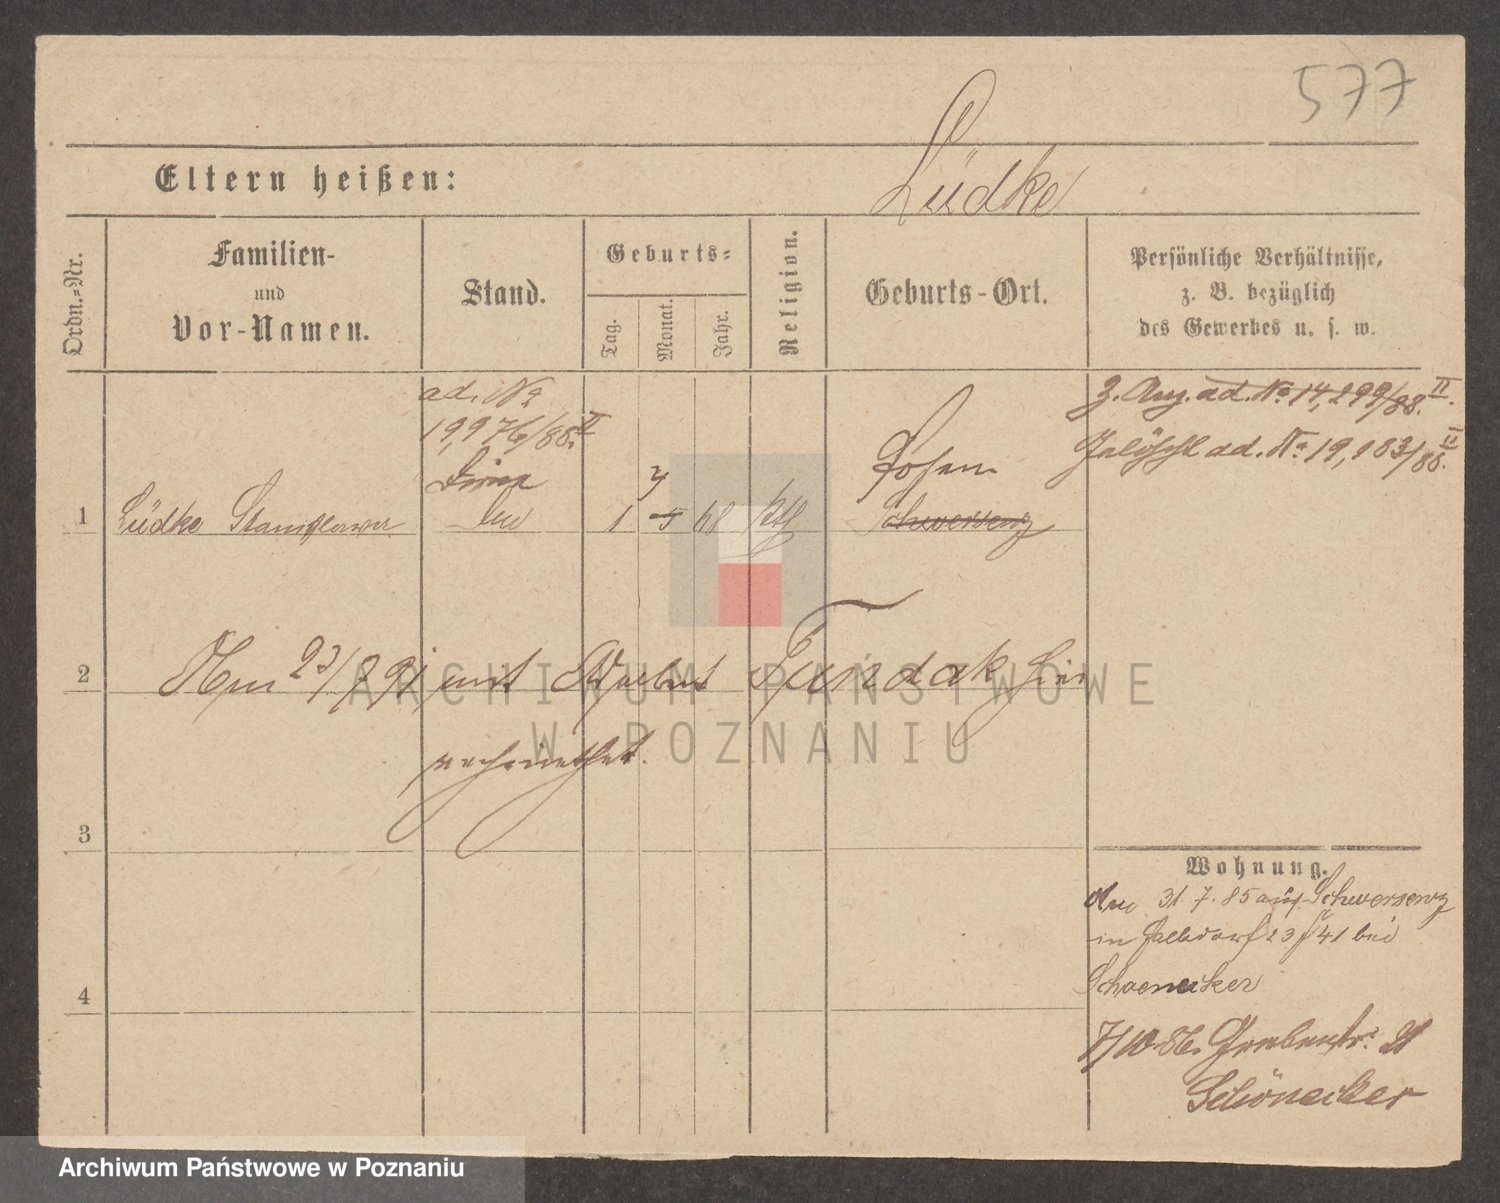 577
Lüdke
Eltern heißen:
Ordn.-Nr.
Familien-
und
Vor-Namen.
Stand.
Geburts-
Tag.
Monat.
Jahr.
Religion.
Geburts-Ort.
Persönliche Verhältnisse,
z. B. bezüglich
des Gewerbes u. s. w.
ad. No
19,976/88.II
z. Ang. ad. No 14,299/88.II.
Gelöscht ad. No 19,183/88.II
Dirne
7
Posen
1 Lüdke Stanislawa
1 5 68 kth Schwersenz
2 Am 23/7 91 mit Adalbert Fandak hier
verheirathet.
3
4
Wohnung.
31.7.85 aus Schwersenz
in Halbdorf 23 f 41 bei
Schoenecker
7/10.86. Grabenstr. 21
Schönecker
ARCHIWUM PAŃSTWOWE
W POZNANIU
Archiwum Państwowe w Poznaniu